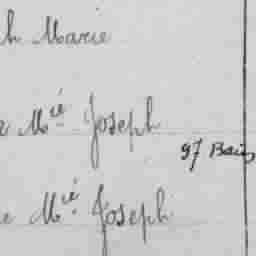 h Marie
Mié Joseph
97 Bais
e Mié Joseph